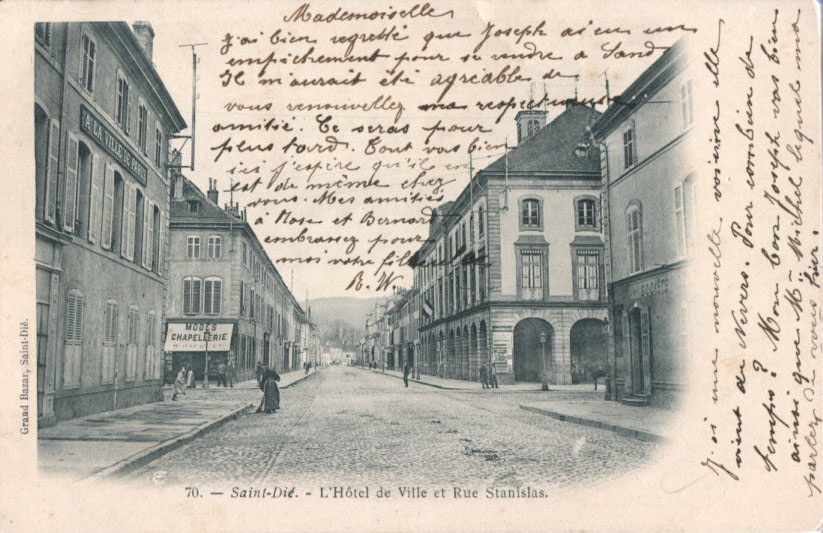 Mademoiselle,
J'ai bien regretté que Joseph ai eu un
empêchement pour se rendre à Sand
Il m'aurait été agréable de
vous renouveller ma respectueuse
amitié. Ce seras pour
plus tard. Tout vas bien
ici j'espère qu'il en
est de même chez
vous. Mes amitiés
à Rose et Bernard
embrassez pour
moi votre
R. W.
J'ai une nouvelle voisine elle
vient de Nevers. Pour combien de
temps? Mon bon Joseph vas bien
ainsi que Mr Michel lequel ma
parler de vous hier.
A LA VILLE DE PARIS
MODES
CHAPELLERIE
SOCIÉTÉ
Grand Bazar, Saint-Dié.
70. — Saint-Dié. - L'Hôtel de Ville et Rue Stanislas.